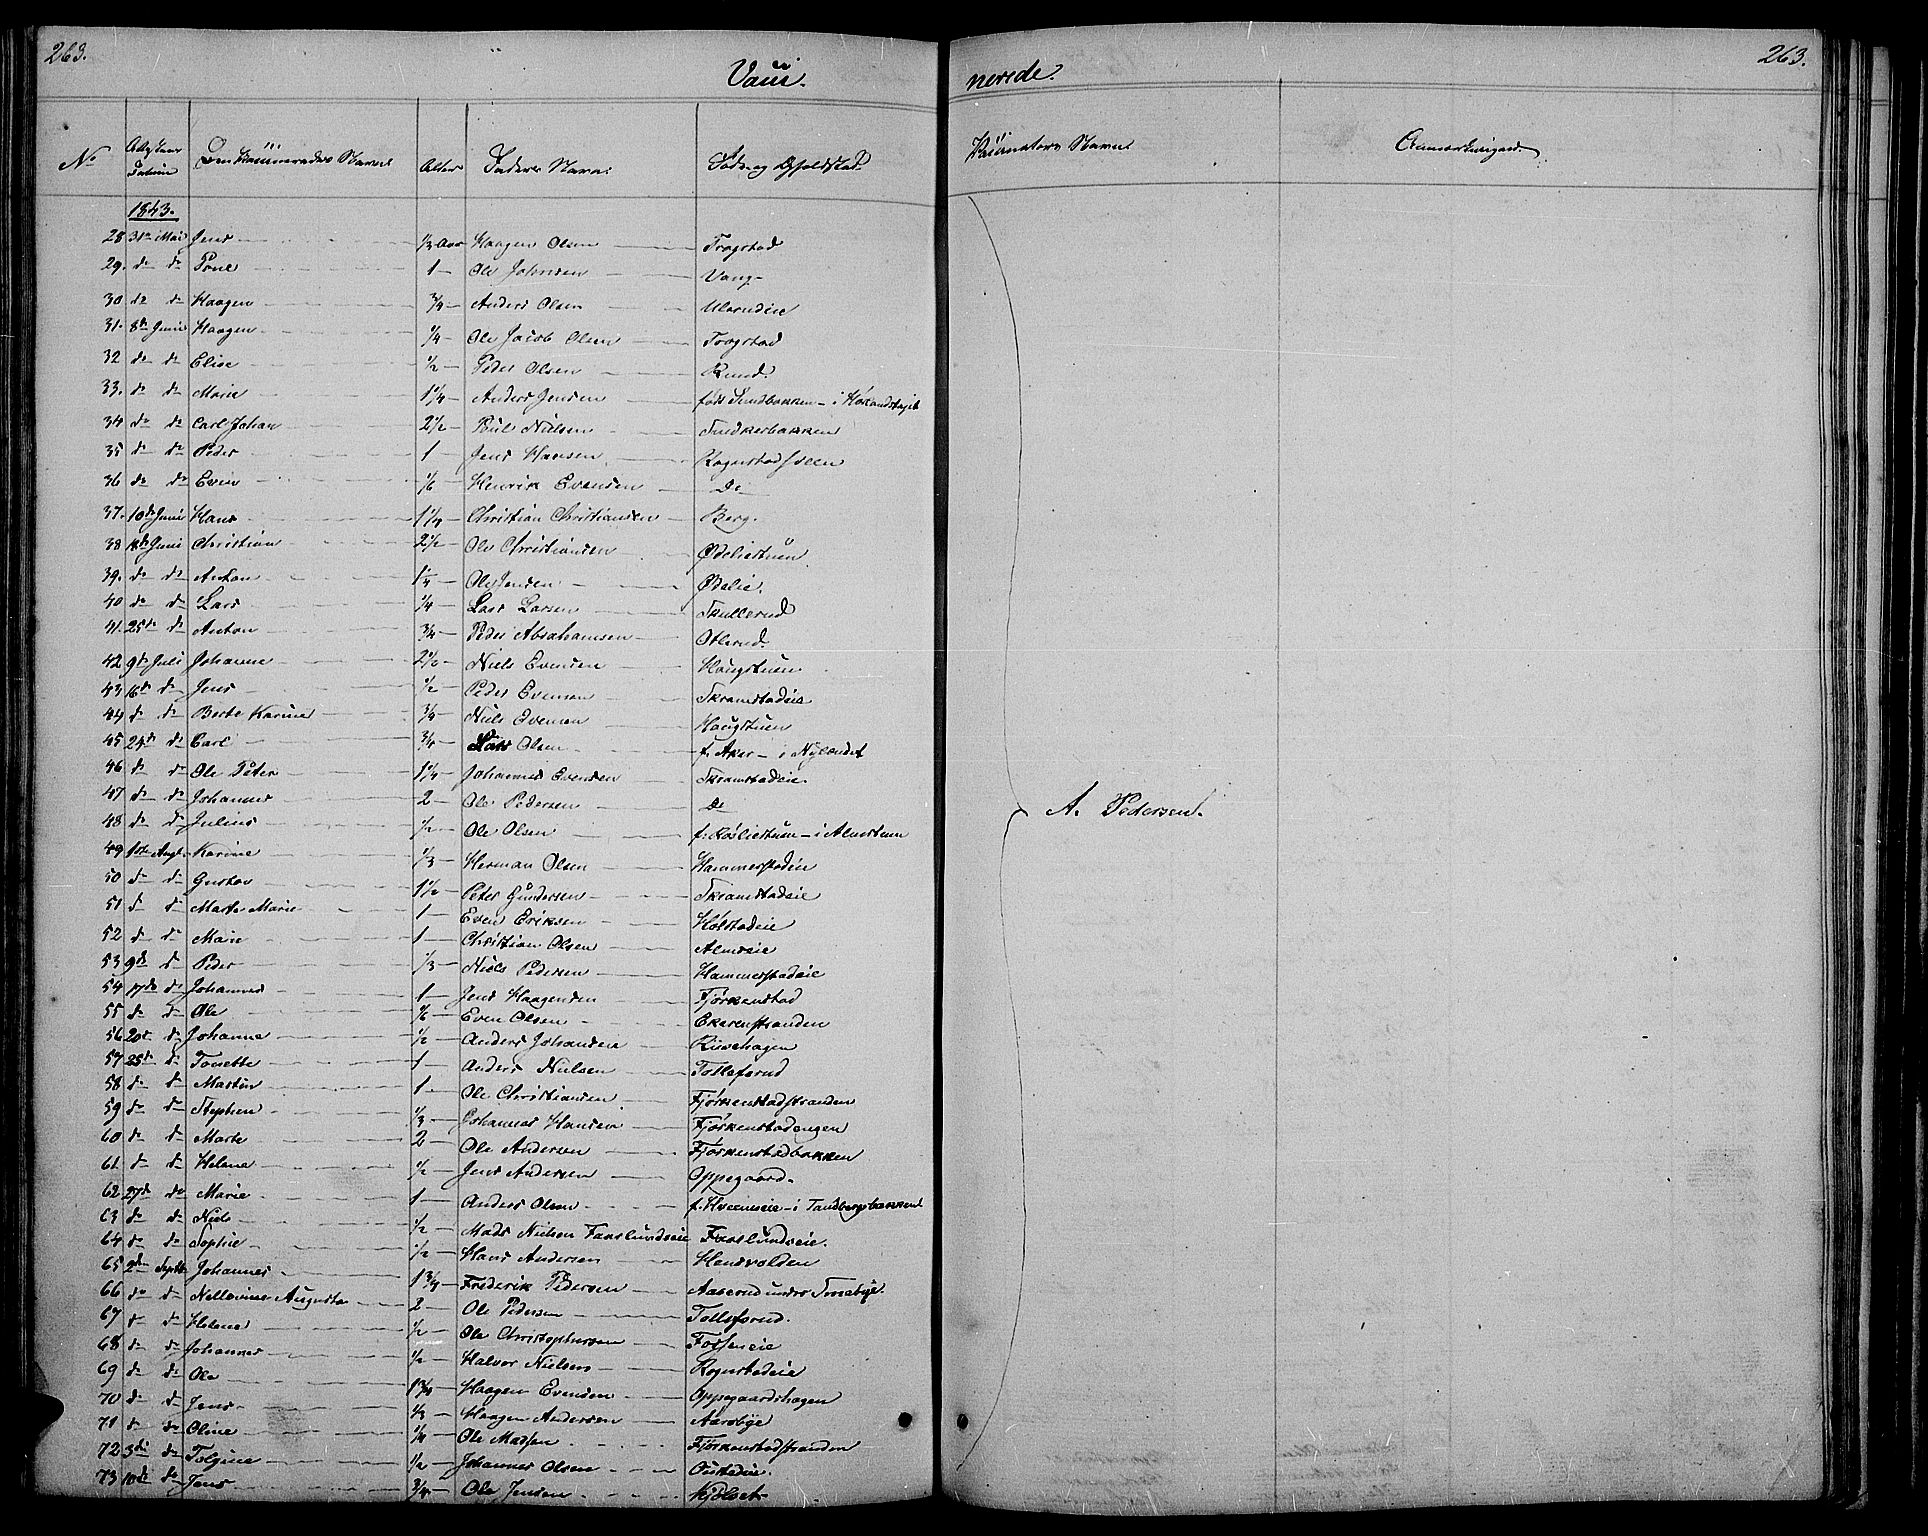 263. 263.
Vaxi nerede.
No Datum Navne Alder Faders Navn Føde og Opholdsted Vaxinatørs Navne Anmærkninger.
1843.
28 31te Mai Jens 1/3 Aar Haagen Olsen Trogstad
29. do do 1 Ole Johnsen Vang
30 do do Haagen 3/4 Anders Olsen Ulerudeie
31. 8de Juni Haagen 1/4 Ole Jacob Olsen Trogstad
32 do do Elise 1/2 Peder Olsen Rund.
33. do do Marie 1 1/4 Anders Jensen født Sundbakken i
34 do do Carl Johan 2 1/2 Poul Nielsen Snedkerbakken
35 do do Peder 1 Jens Hansen
36 do do Even 1/6 Henrik Evensen Do
37. 10de Juni Hans 1 1/4 Christian Christiansen Berg.
38 Juni Christian 2 1/2 Ole Christiansen Ødeliestuen
39. do do Anton Ole Jensen Ødelie.
40 do do Lars 1/4 Lars Larsen Skullerud
41. 25de do Anton 3/4 Peder Abrahamsen Oterud.
42 9de Juli Johanne 2 1/2 Niels Evensen Haugstuen
43 16de do Jens 1/2 Peder Evensen Skramstadeie
44 do do Berte Karine 3/4 Niels Evensen Haugstuen
45 24de do Carl 3/4 Lars Olsen f. Aker i Nylændet
46 do do Ole Peter 1 1/4 Johannes Evensen Skramstadeie.
47 do do Johannes 2 Ole Pedersen do
48 do do Julius 1/2 Ole Olsen f. Røsliestuen i Almstuen
49 1ste Augt. Karine 1/3 Herman Olsen Hammerstadeie
50 do do Gustav 1 1/2 Peter Gundersen Skramstadeie
51 do do Marte Marie 1 Even Eriksen Holstadeie
52 do do Marie 1 Christian Olsen Almseie
53 9de do Peder 1/3 Niels Pedersen Hammerstadeie
54 17de do Johannes 1 Jens Haagensen Fjørkenstad
55 do do Ole 1/6 Even Olsen Ekerenstranden
56 20de do Johanne 1/2 Anders Johansen
57 25de do Tonette 1 Anders Nielsen Tollefsrud
58 do do Martin 1 Ole Christiansen Fjørkenstadstranden
59 do do Stephen 1/3 Johannes Hansen Fjørkenstadengen
60 do do Marte 2 Ole Andersen Fjørkenstadbakken
61. do do Helene 1/2 Jens Andersen Oppegaard.
62 27de do Marie 1 Anders Olsen f. Hveemseie i Tandbergsbakken
63 do do Niels 1/2 Mads Nielsen Faaslundseie Faaslundseie.
64 do do Sophie 1/2 Hans Andersen Hensvolden
65 2den Septbr Johannes 1 3/4 Frederik Pedersen Aaserud under Tosebye.
66 do do Nellovine Augusta 2 Ole Pedersen Tollefsrud.
67 do do Helene 1/2 Ole Christophersen Fosseneie
68 do do Johannes 1/2 Halvor Nielsen Rognstadeie
69 do do Ole 1 3/4 Haagen Evensen Oppegaardshagen
70 do do Jens 1/3 Haagen Andersen Aarsbye
71 do do Oline 1/4 Ole Madsen Fjørkenstadstranden
72 3die do 1/2 Johannes Olsen Oustadeie.
73 10de do Jens 3/4 Ole Jensen Kjølset
A. Pedersen.